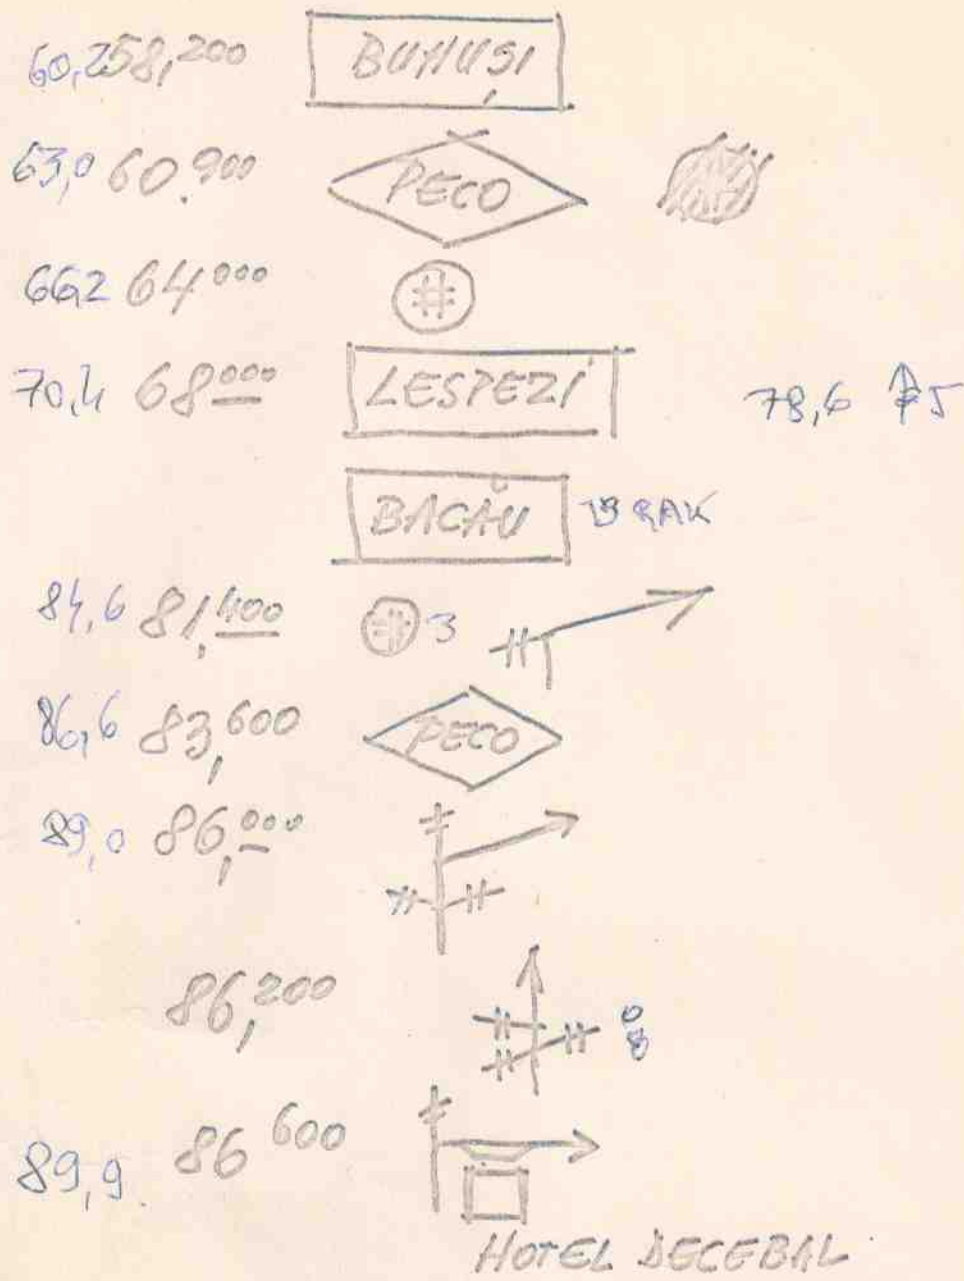 60,2 58,200 BUHUȘI
63,0 60.900 PECO
66,2 64000 #
70,4 68000 LESPEZI 78,6
BACĂU
84,6 81,400 # 3
86,6 83,600 PECO
89,0 86,000
86,200
89,9. 86 600
HOTEL DECEBAL